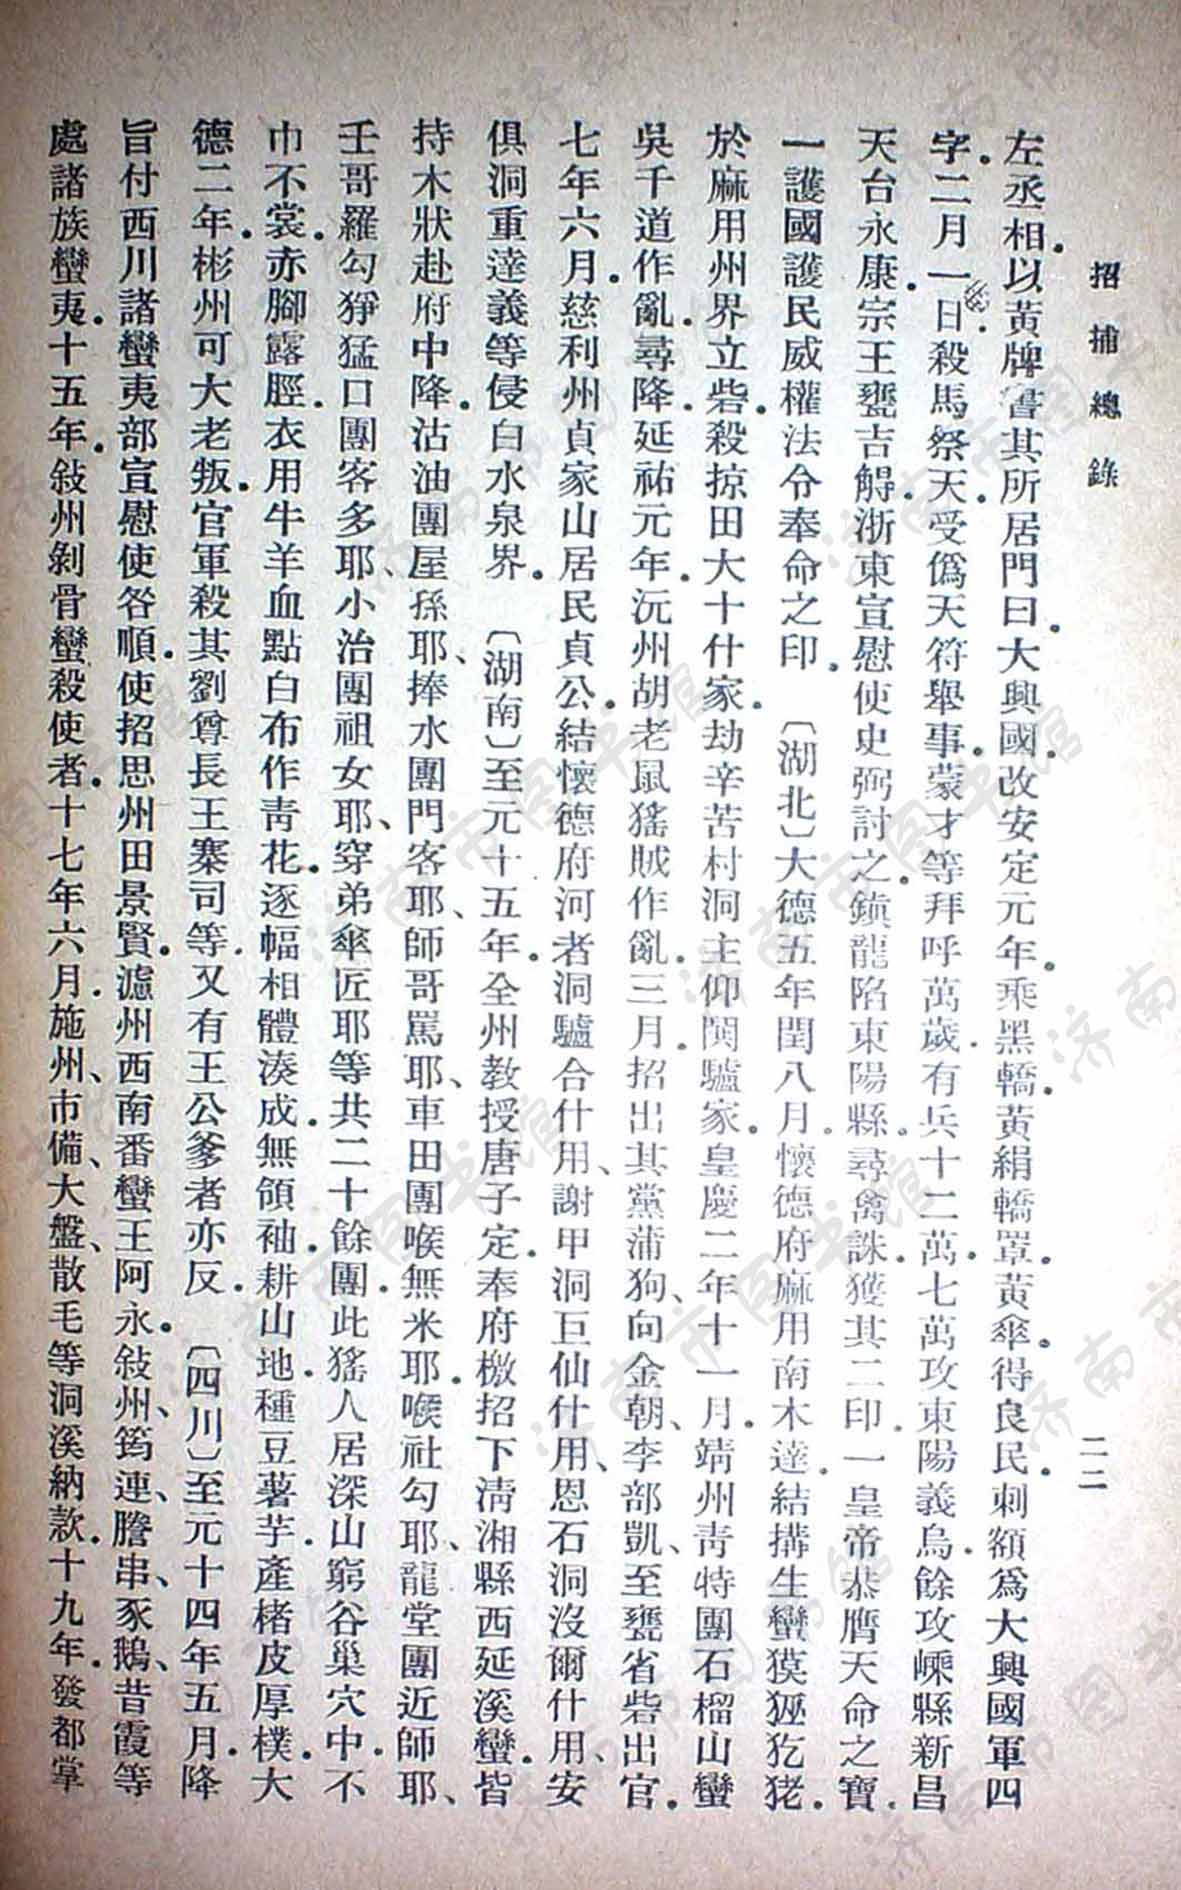 招捕總錄
二二
左丞相。以黃牌書其所居門曰。大興國。改安定元年。乘黑轎。黃絹轎罩。黃傘。得良民。刺額爲大興國軍四
字。二月一日。殺馬祭天。受僞天符舉事。蒙才等拜呼萬歲。有兵十二萬。七萬攻東陽義烏。餘攻嵊縣新昌
天台永康。宗王甕吉䚟。浙東宣慰使史弼討之。鎮龍陷東陽縣。尋禽誅。獲其二印。一皇帝恭膺天命之寶。
一護國護民威權法令奉命之印。〔湖北〕大德五年閏八月。懷德府麻用南木達。結搆生蠻獏狿犵狫。
於麻用州界立砦。殺掠田大十什家。劫辛苦村洞主仰閧驢家。皇慶二年十一月。靖州青特團石榴山蠻
吳千道作亂。尋降。延祐元年。沅州胡老鼠猺賊作亂。三月。招出其黨蒲狗、向金朝、李部凱、至甕省砦出官。
七年六月。慈利州貞家山居民貞公。結懷德府河者洞驢合什用、謝甲洞巨仙什用、恩石洞沒爾什用、安
俱洞重達義等侵白水泉界。〔湖南〕至元十五年。全州教授唐子定。奉府檄招下清湘縣西延溪蠻。皆
持木狀赴府中降。沽油團屋孫耶、捧水團門客耶、師哥罵耶、車田團喉無米耶。喉社勾耶、龍堂團近師耶、
壬哥羅勾猙猛口團客多耶、小治團祖女耶、穿弟傘匠耶等共二十餘團。此猺人居深山窮谷巢穴中。不
巾不裳。赤腳露脛。衣用牛羊血點白布作青花。逐幅相體湊成。無領袖。耕山地。種豆薯芋。產楮皮厚樸。大
德二年。彬州可大老叛。官軍殺其劉尊長王寨司等。又有王公爹者亦反。〔四川〕至元十四年五月。降
旨付西川諸蠻夷部宣慰使昝順。使招思州田景賢。瀘州西南番蠻王阿永。敍州、筠連、騰串、豕鵝、昔霞等
處諸族蠻夷。十五年。敍州剝骨蠻殺使者。十七年六月。施州、市備、大盤、散毛等洞溪納款。十九年。發都掌